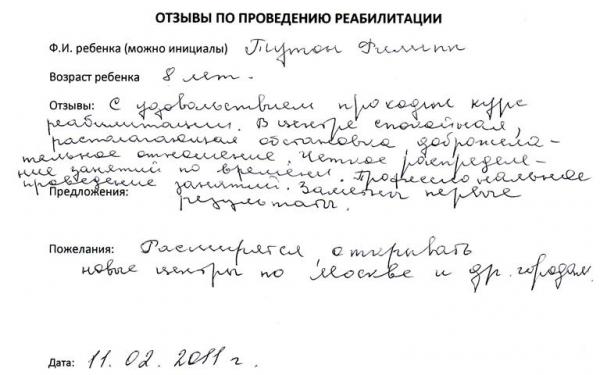 ОТЗЫВЫ ПО ПРОВЕДЕНИЮ РЕАБИЛИТАЦИИ
Ф.И. ребенка (можно инициалы) Путон Филипп
Возраст ребенка 8 лет.
Отзывы: С удовольствием проходим курс
реабилитации. В центре спокойная,
располагающая обстановка, доброжела-
тельное отношение. Четкое распределе-
ние занятий по времени. Профессиональное
проведение занятий. Заметны первые
Предложения: результаты.
Пожелания: Расширятся, открывать
новые центры по Москве и др. городам.
Дата: 11.02.2011 г.